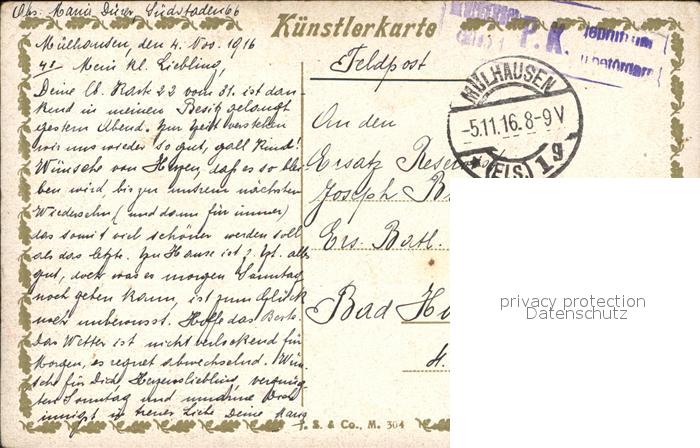 Abs. Maria Südstaden 66
Künstlerkarte
P. K.
Mülhausen, den 4. Nov. 1916
Mein kl. Liebling,
Feldpost
MÜLHAUSEN
-5.11.16.8-9V
*(ELS.)19
Deine lb. Karte 22 vom 31. ist dan-
kend in meinen Besitz gelangt
gestern Abend. Zur Zeit verstehen
wir uns wieder so gut, gell Kind!
Wünsche von Herzen, daß es so blei-
ben wird, bis zu unserm nächsten
Wiedersehn (und dann für immer)
das somit viel schöner werden soll
als das letzte. Zu Hause ist z. Zt. alles
gut, doch was es morgen Sonntag
noch geben kann, ist zum Glück
noch unbewusst. Hoffe das Beste.
Das Wetter ist nicht verlockend für
Morgen, es regnet abwechselnd. Wün-
sche für Dich, Herzensliebling, vergnüg-
ten Sonntag und umarme Dich
innigst in treuer Liebe Deine
An den
Ersatz Reservist
Joseph
Ers. Batl.
Bad
4.
S. & Co., M. 304
privacy protection
Datenschutz